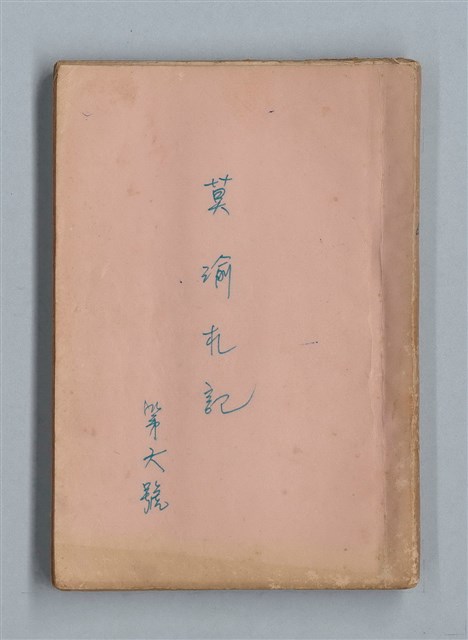 莫瑜札記
第六號